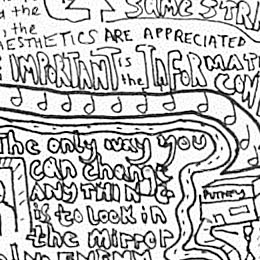 d the SAME STRI
, the
AESTHETICS ARE APPRECIATED
IMPORTANT is the INFORMATI
CON
The only way you
can change
ANYTHING
is to look in
the mirror